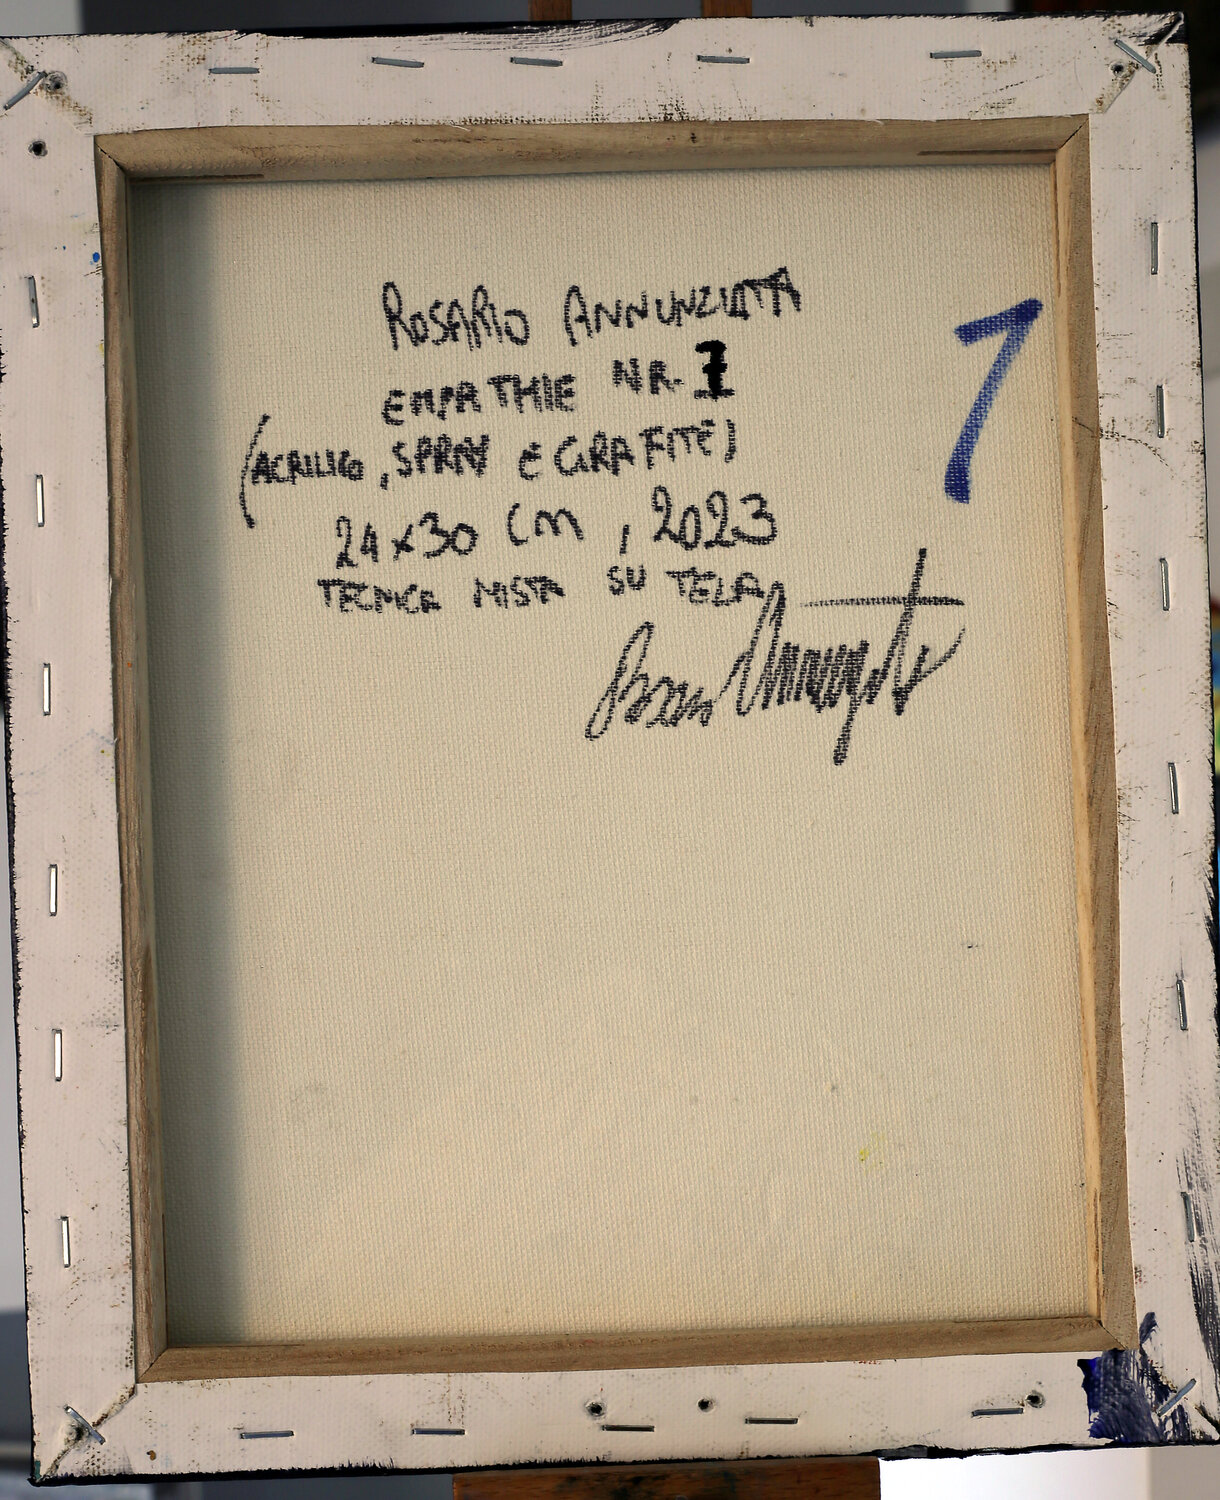 ROSARIO ANNUNZIATA
EMPATHIE NR. 1
(ACRILICO, SPRAY E GRAFITE)
24x30 cm, 2023
TECNICA MISTA SU TELA
1